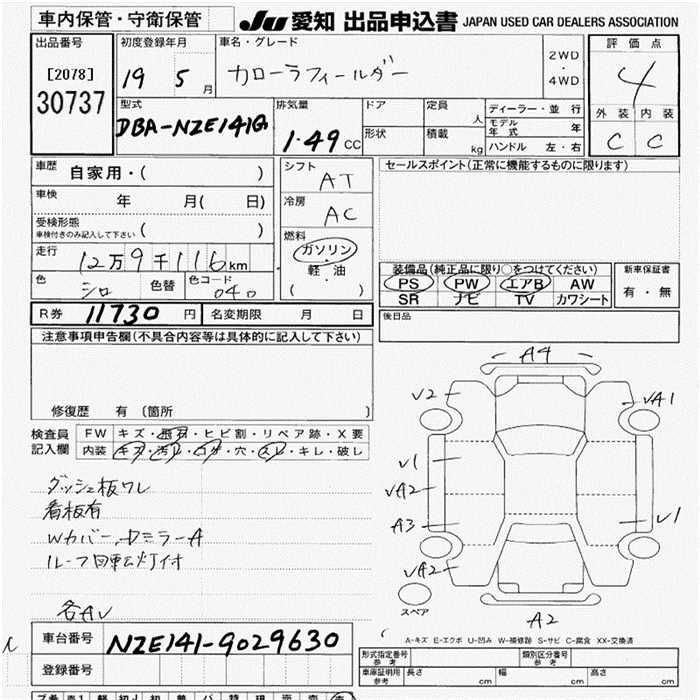 車内保管・守衛保管
JU 愛知 出品申込書 JAPAN USED CAR DEALERS ASSOCIATION
出品番号
[2078]
30737
初度登録年月
19 5 月
車名・グレード
カローラフィールダー
2WD
・
4WD
評価点
4
外装 内装
C C
型式
DBA-NZE141G
排気量
1.49 CC
ドア
形状
定員
人
積載
kg
ディーラー・並行
モデル年式 年
ハンドル 左・右
車歴
自家用・( )
車検
年 月( 日)
受検形態
車検付きのみ記入して下さい ( )
走行
12万9千116km
色
シロ
色替
色コード
040
シフト
AT
冷房
AC
燃料
ガソリン
・
軽・油
( )
セールスポイント(正常に機能するものに限ります)
装備品(純正品に限り○をつけてください)
PS PW エアB AW
SR ナビ TV カワシート
新車保証書
有・無
R券 11730 円
名変期限 月 日
後日品
注意事項申告欄(不具合内容等は具体的に記入して下さい)
修復歴 有 (箇所 )
検査員
記入欄
FW キズ・飛石・ヒビ割・リペア跡・X要
内装 キズ・汚レ・コゲ・穴・スレ・キレ・破し
ダッシュ板ワレ
看板有
Wカバー、Dミラー A
ルーフ回転灯付
各AU
A4
U2
UA1
U1
UA2
A3
U1
UA2
A2
スペア
A-キズ E-エクボ U-凹み W-補修跡 S-サビ C-腐食 XX-交換済
車台番号 NZE141-9029630
登録番号
形式指定番号
参考
類別区分番号
参考
車庫証明用
参考
長さ 幅 高さ